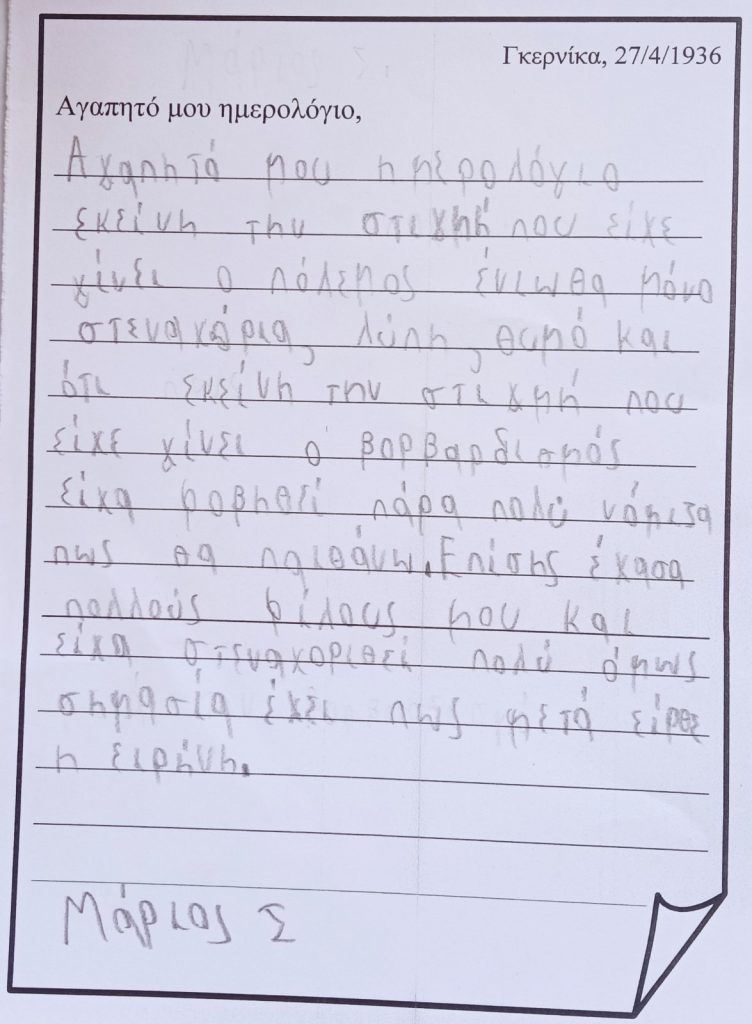 Γκερνίκα, 27/4/1936
Αγαπητό μου ημερολόγιο,
Αγαπητό μου ημερολόγιο
εκείνη την στιγμή που είχε
γίνει ο πόλεμος ένιωθα μόνο
στεναχώρια, λύπη, θυμό και
ότι εκείνη την στιγμή που
είχε γίνει ο βορβαρδισμός
είχα φοβηθεί πάρα πολύ νόμιζα
πως θα παιθάνω. Επίσης έχασα
πολλούς φίλους μου και
είχα στεναχοριθεί πολύ όμως
σημασία έχει πως μετά είρθε
η ειρήνη.
Μάριος Σ